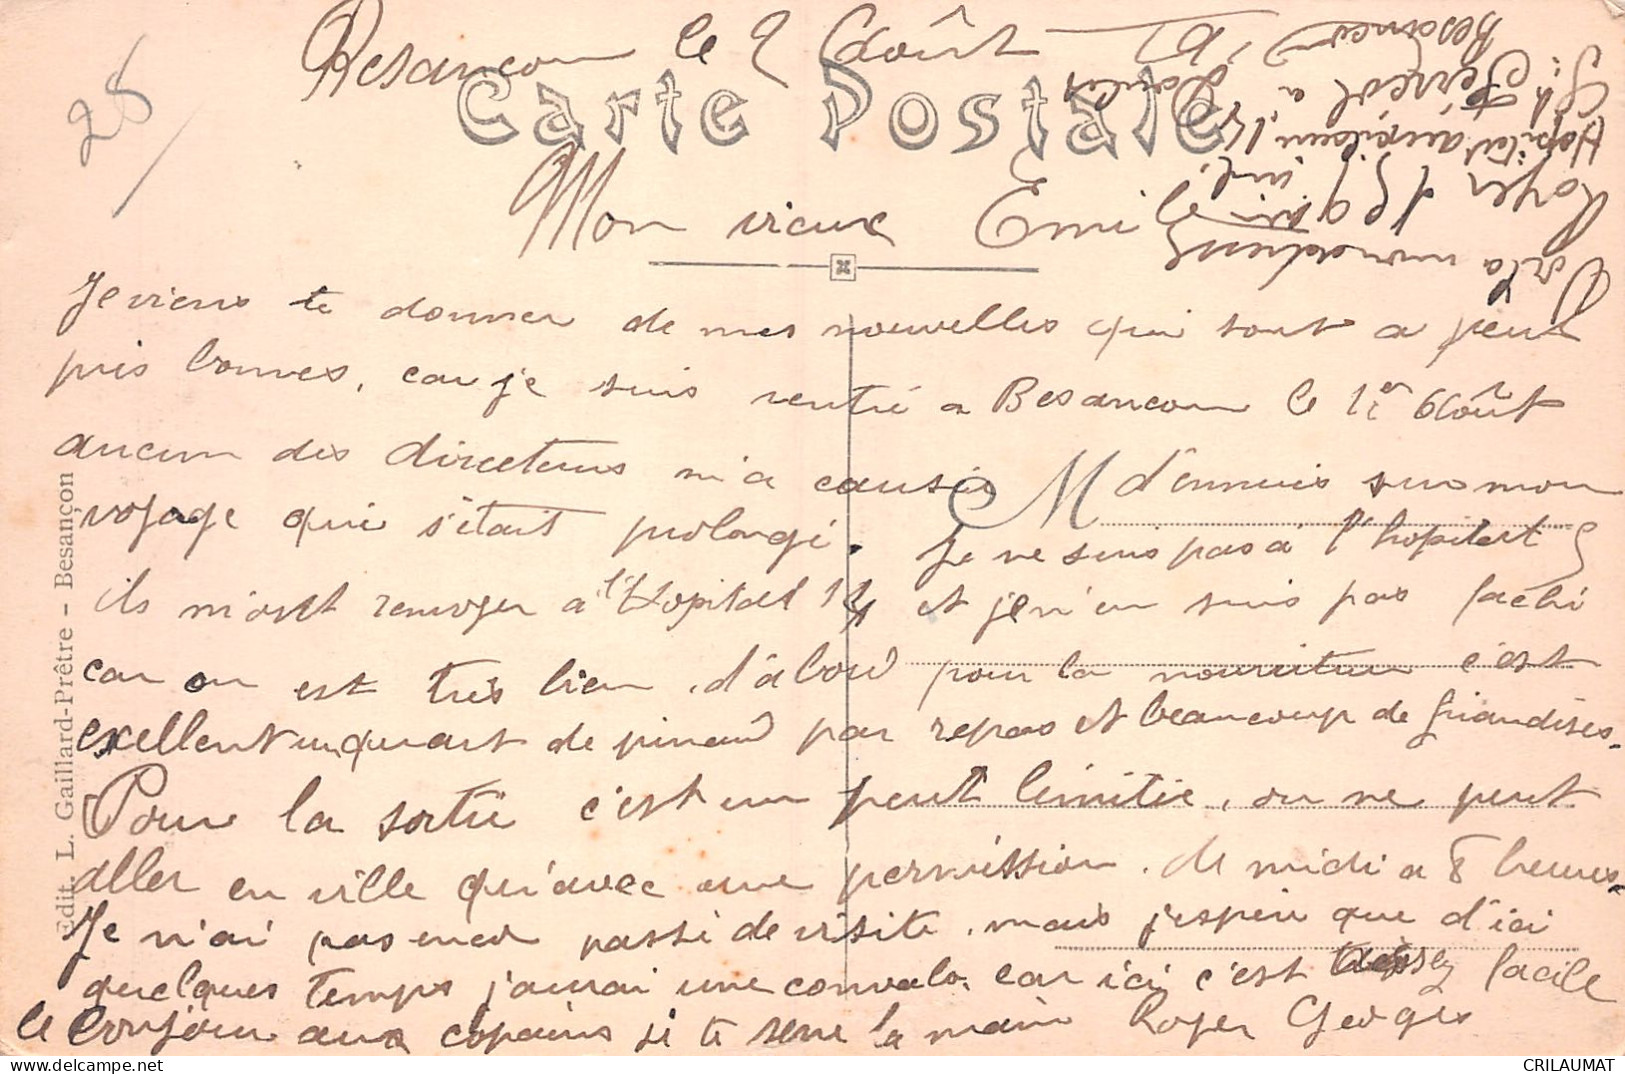 28
Besançon le 2 Août
Carte Postale
Mon vieux Emile
Je viens te donner de mes nouvelles qui sont a peut
pris bonnes, car je suis rentré a Besançon le 1er Août
aucun des directeurs m'a causé d'ennuis sur mon
M
voyage qui s'était prolongé. Je ne suis pas à l'hopital S
ils m'ont renvoyer a l'Hopital 14 et je n'en suis pas faché
car on est très bien, d'abord pour la nourriture c'est
excellent un quart de pinard par repas et beaucoup de friandises.
Pour la sortie c'est un peut limitie, on ne peut
aller en ville qu'avec une permission. de midi a 8 heures.
Je n'ai pas encor passé de visite, mais j'espère que d'ici
quelques temps j'aurai une convalo. car ici c'est assez facile
le bonjour aux copains je te serre la main Roger Georges
Roger 159 inf.
Hopital auxiliaire 14
St Ferreol a
Besançon
Doubs
Edit. L. Gaillard-Prêtre - Besançon
CRILAUMAT